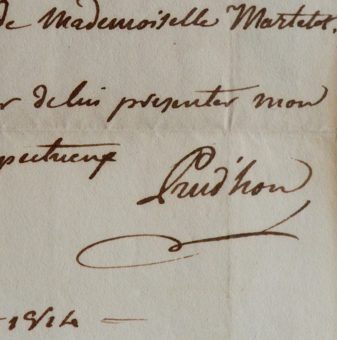 de Mademoiselle Martelet.
r de lui presenter mon
pectueux
Prud'hon
1814